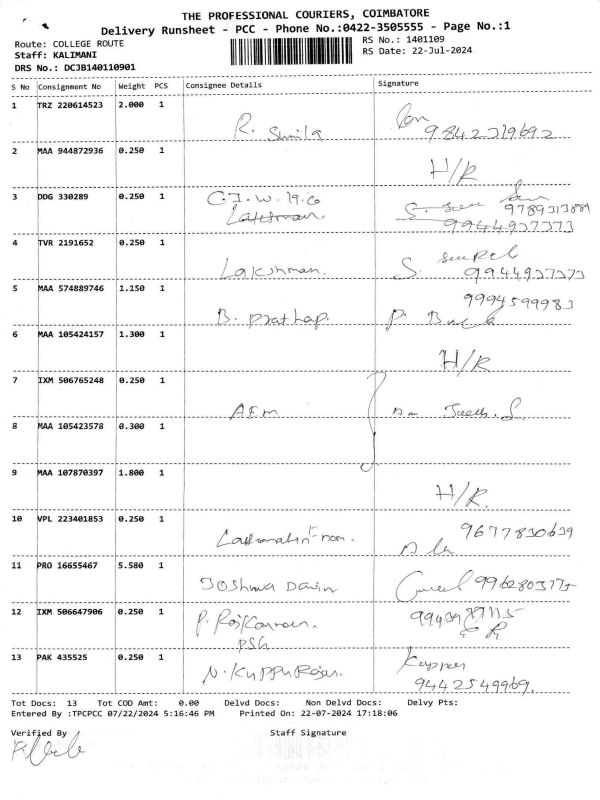 THE PROFESSIONAL COURIERS, COIMBATORE
Delivery Runsheet - PCC - Phone No.:0422-3505555 - Page No.:1
Route: COLLEGE ROUTE RS No.: 1401109
Staff: KALIMANI RS Date: 22-Jul-2024
DRS No.: DCJB140110901
S No Consignment No Weight PCS Consignee Details Signature
1 TRZ 220614523 2.000 1
R. Sunila 9842319692
2 MAA 944872936 0.250 1
H/R
3 DDG 330289 0.250 1
9789313889
Lakshman. 9944937373
4 TVR 2191652 0.250 1
Lakshman. S. 9944937373
5 MAA 574889746 1.150 1 9994599983
B. Prathap. P.
6 MAA 105424157 1.300 1
H/R
7 IXM 506765248 0.250 1
AFM
8 MAA 105423578 0.300 1
9 MAA 107870397 1.800 1
H/R.
10 VPL 223401853 0.250 1 9677830639
11 PRO 16655467 5.580 1
Joshuva 9962803175
12 IXM 506647906 0.250 1
P. PSG
13 PAK 435525 0.250 1
N. 9442549969.
Tot Docs: 13 Tot COD Amt: 0.00 Delvd Docs: Non Delvd Docs: Delvy Pts:
Entered By :TPCPCC 07/22/2024 5:16:46 PM Printed On: 22-07-2024 17:18:06
Verified By Staff Signature